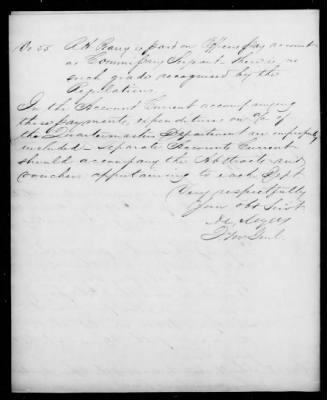 No 55 A H Rowy is paid on Officers pay account
as Commissary Sergeant. There is no
such grade recognized by the
Regulations.
In the Account Current accompanying
these payments, expenditures on % of
the Quartermasters Department are improperly
included — separate Accounts Current
should accompany the Abstracts and
vouchers appertaining to each Dept
Very respectfully
Your obt Servt